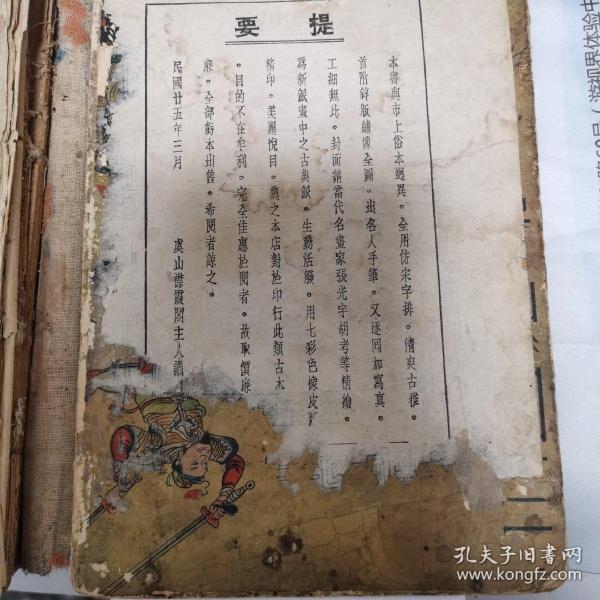 提要
本書與市上俗本迥異。全用仿宋字排。清爽古雅。
首附鋅版繡像全圖。出名人手筆。又逐回加寫真。
工細無比。封面請當代名畫家張光宇胡考等精繪。
為新派畫中之古典派。生動活潑。用七彩色橡皮
精印。美麗悅目。總之本店對於印行此類古本
。目的不在牟利。完全佳惠於閱者。故取價廉
廉。全部虧本出售。希閱者諒之。
民國廿五年三月
虞山襟霞閣主人識
孔夫子旧书网
www.kongfz.com